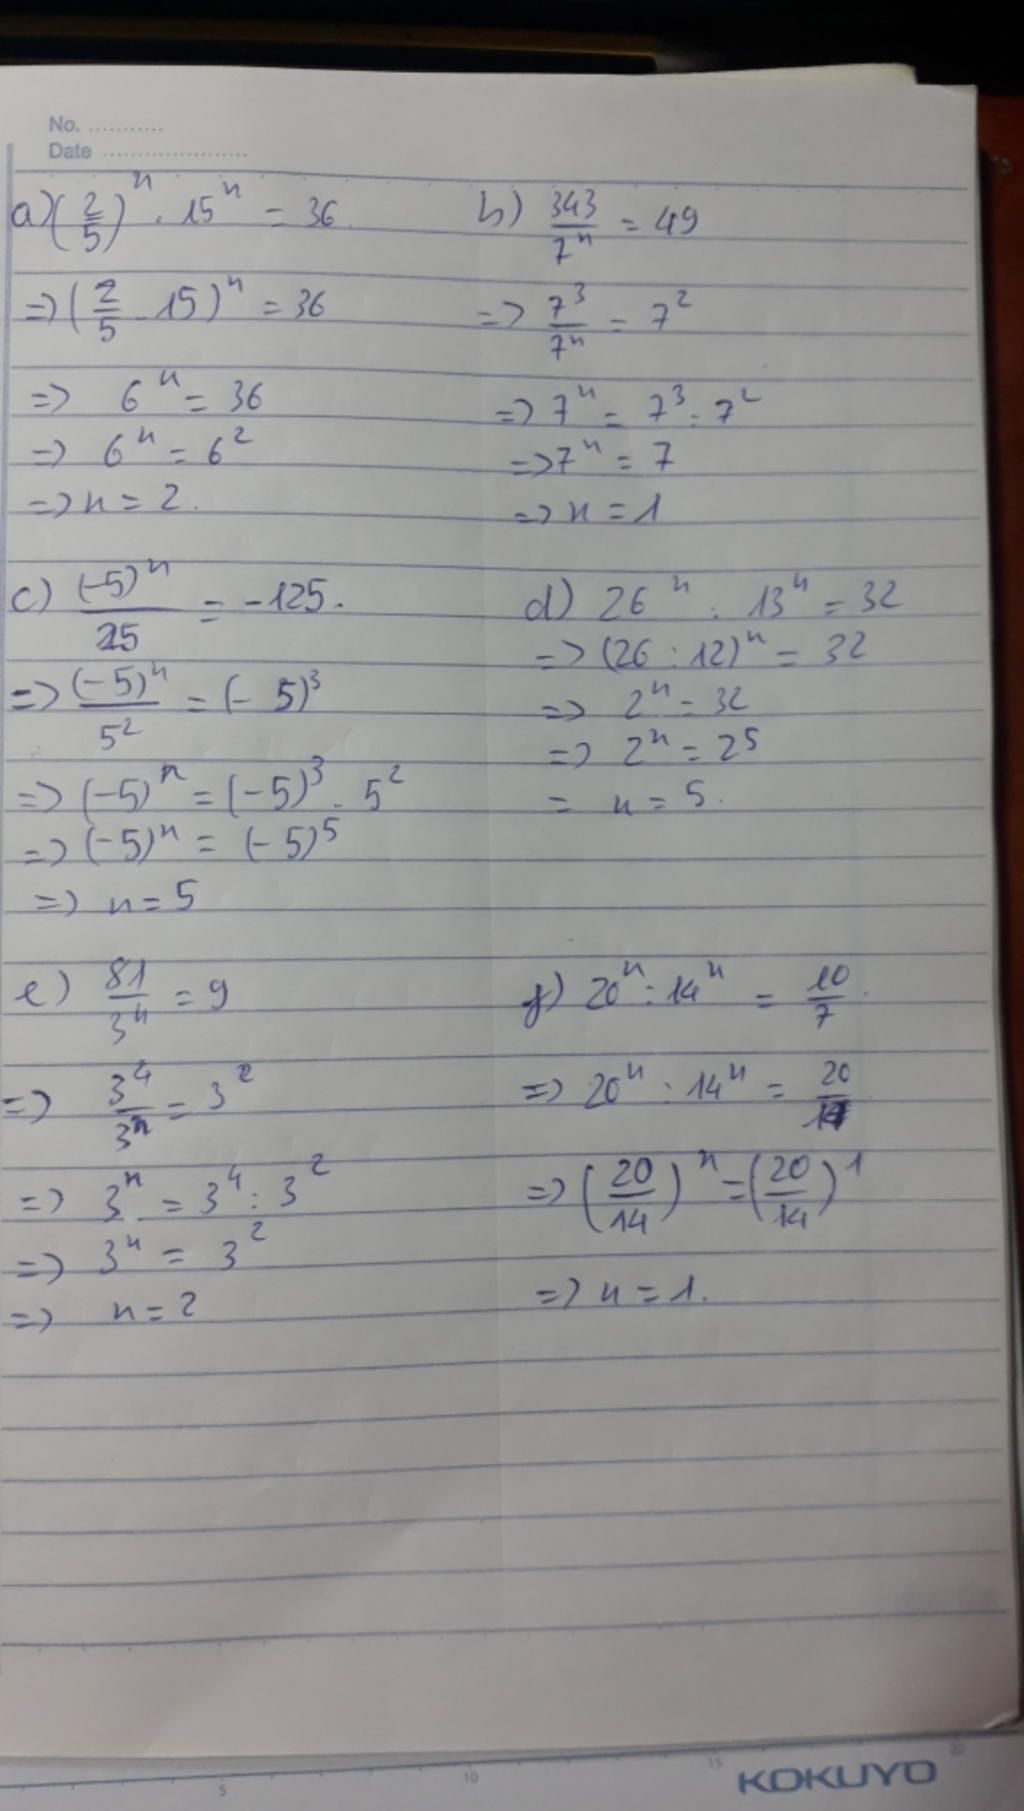 No. ...........
Date ......................
a) (2/5)^n . 15^n = 36
=> (2/5 . 15)^n = 36
=> 6^n = 36
=> 6^n = 6^2
=> n = 2.
b) 343/7^n = 49
=> 7^3/7^n = 7^2
=> 7^n = 7^3 : 7^2
=> 7^n = 7
=> n = 1
c) (-5)^n/25 = -125.
=> (-5)^n/5^2 = (-5)^3
=> (-5)^n = (-5)^3 . 5^2
=> (-5)^n = (-5)^5
=> n = 5
d) 26^n : 13^n = 32
=> (26 : 12)^n = 32
=> 2^n = 32
=> 2^n = 2^5
= n = 5.
e) 81/3^n = 9
=> 3^4/3^n = 3^2
=> 3^n = 3^4 : 3^2
=> 3^n = 3^2
=> n = 2
f) 20^n : 14^n = 10/7.
=> 20^n : 14^n = 20/14
=> (20/14)^n = (20/14)^1
=> n = 1.
5 10 15 20
KOKUYO